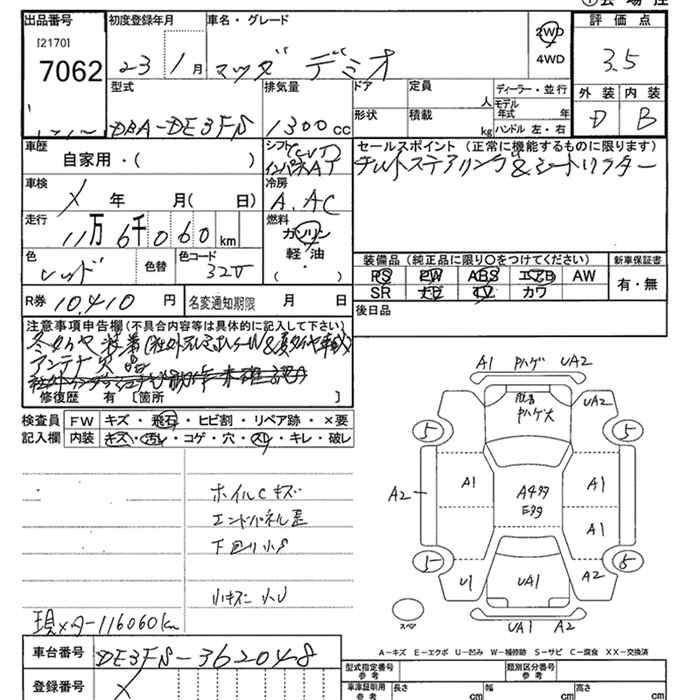 出品番号 初度登録年月 車名・グレード 2WD 評価点
[2170]
7062 23 1月 マツダ デミオ 4WD 3.5
型式 排気量 ドア 定員 人 ディーラー・並行 外装 内装
DBA-DE3FS 1300cc 形状 積載 kg モデル年式 年 D B
ハンドル 左・右
車歴 シフト セールスポイント (正常に機能するものに限ります)
自家用・( ) CVT インパネAT チルトステアリング&シートリフター
車検 冷房
X 年 月( 日) A.AC
走行 燃料
11万6千060km ガソリン
軽・油
( )
色 色替 色コード
レッド 32V
装備品 (純正品に限り○をつけてください) 新車保証書
PS PW ABS エアB AW 有・無
SR ナビ TV カワ
R券 10,410 円 名変通知期限 月 日 後日品
注意事項申告欄(不具合内容等は具体的に記入して下さい)
冬タイヤ装着(社外アルミホイールW&夏タイヤ車載)
アンテナ欠品
修復歴 有 [箇所 ]
検査員 FW キズ・飛石・ヒビ割・リペア跡・×要
記入欄 内装 キズ・汚れ・コゲ・穴・スレ・キレ・破レ
ホイルCキズ
エンドパネル歪
下回り小S
小キズ 小U
現メーター116060km
A1 Pハゲ UA2
Pハゲ大 UA2
5 5
A1 A1
A2 A4
A1
5 5
U1 UA1 A2
スペア UA1 A2
A-キズ E-エクボ U-凹み W-補修跡 S-サビ C-腐食 XX-交換済
車台番号 DE3FS-362048 型式指定番号 参考 類別区分番号 参考
登録番号 X 車庫証明用 参考 長さ cm 幅 cm 高さ cm